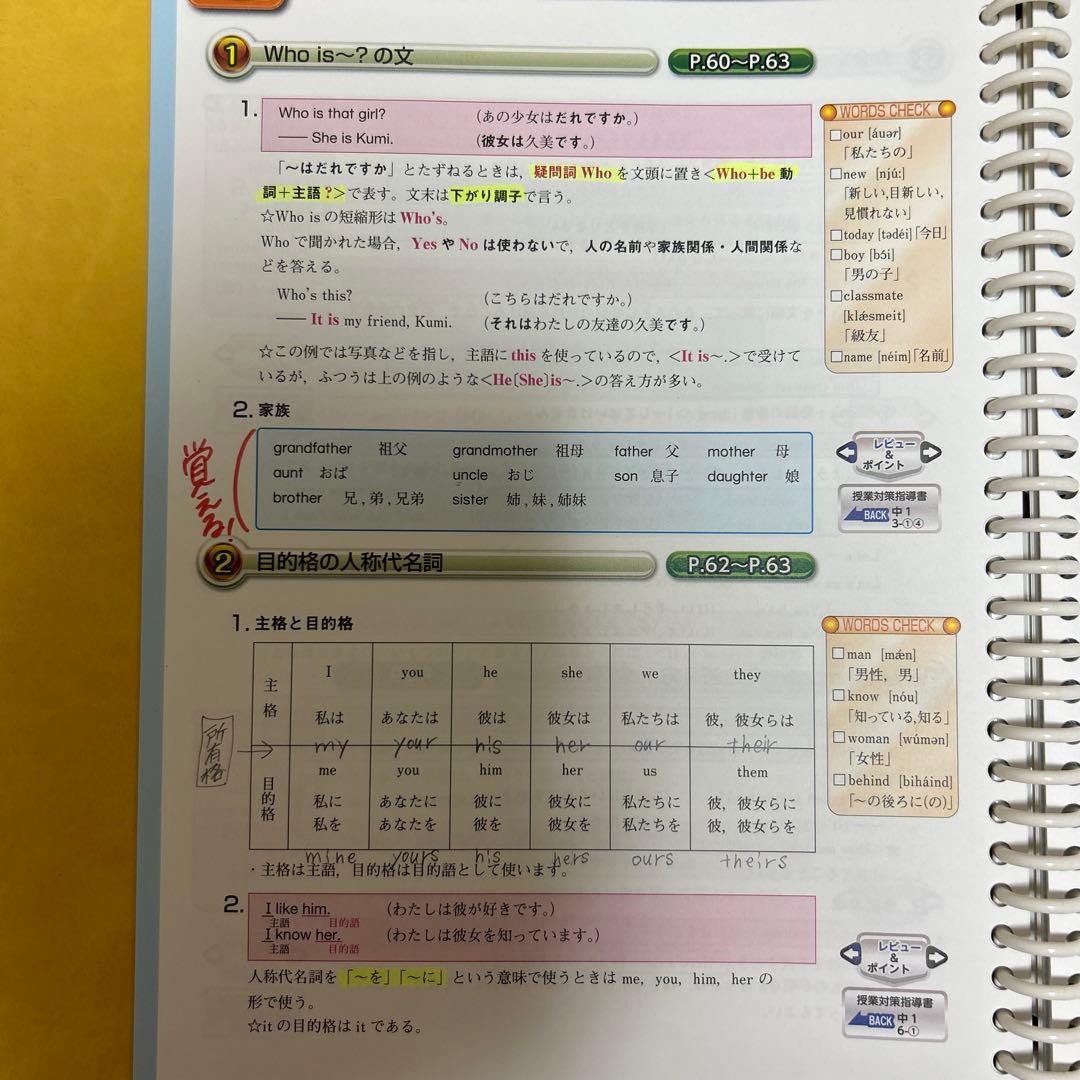 1 Who is～? の文 P.60～P.63
1. Who is that girl? (あの少女はだれですか。)
── She is Kumi. (彼女は久美です。)
「～はだれですか」とたずねるときは, 疑問詞 Who を文頭に置き<Who+be 動
詞+主語?>で表す。文末は下がり調子で言う。
☆Who is の短縮形は Who's。
Who で聞かれた場合, Yes や No は使わないで, 人の名前や家族関係・人間関係な
どを答える。
Who's this? (こちらはだれですか。)
── It is my friend, Kumi. (それはわたしの友達の久美です。)
☆この例では写真などを指し, 主語に this を使っているので, <It is～.>で受けて
いるが, ふつうは上の例のような<He〔She〕is～.>の答え方が多い。
WORDS CHECK
□our [áuər]
「私たちの」
□new [njú:]
「新しい,目新しい,
見慣れない」
□today [tədéi]「今日」
□boy [bɔ́i]
「男の子」
□classmate
[klǽsmeit]
「級友」
□name [néim]「名前」
2. 家族
覚える!
grandfather 祖父 grandmother 祖母 father 父 mother 母
aunt おば uncle おじ son 息子 daughter 娘
brother 兄,弟,兄弟 sister 姉,妹,姉妹
レビュー
&
ポイント
授業対策指導書
BACK 中1
3-①④
2 目的格の人称代名詞 P.62～P.63
1. 主格と目的格
主格 I you he she we they
私は あなたは 彼は 彼女は 私たちは 彼, 彼女らは
所有格 → my your his her our their
目的格 me you him her us them
私に あなたに 彼に 彼女に 私たちに 彼, 彼女らに
私を あなたを 彼を 彼女を 私たちを 彼, 彼女らを
mine yours his hers ours theirs
・主格は主語, 目的格は目的語として使います。
WORDS CHECK
□man [mǽn]
「男性, 男」
□know [nóu]
「知っている,知る」
□woman [wúmən]
「女性」
□behind [biháind]
「～の後ろに(の)」
2. I like him. (わたしは彼が好きです。)
主語 目的語
I know her. (わたしは彼女を知っています。)
主語 目的語
人称代名詞を「～を」「～に」という意味で使うときは me, you, him, her の
形で使う。
☆it の目的格は it である。
レビュー
&
ポイント
授業対策指導書
BACK 中1
6-①